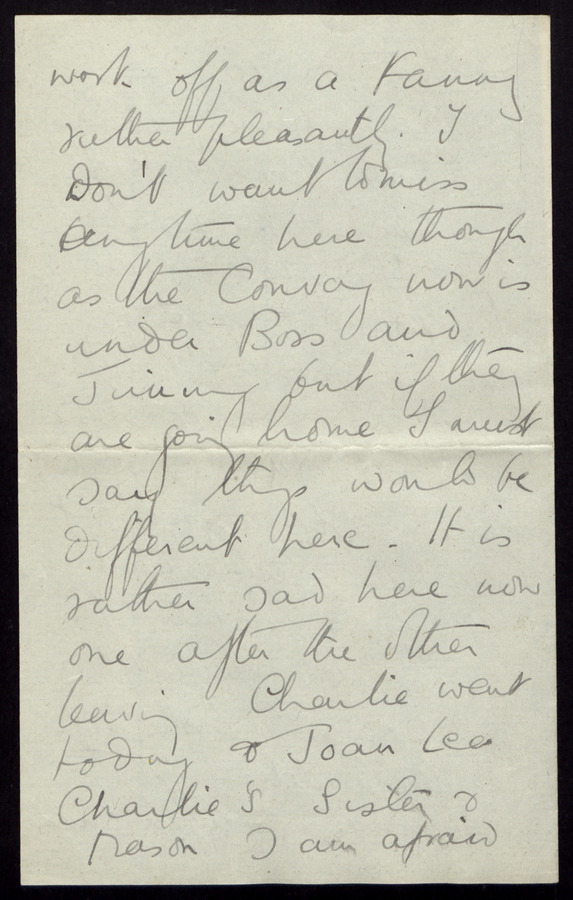 work off as a Fanny
rather pleasantly. I
Don't want to miss
any time here though
as the Convoy now is
under Boss and
Jimmy but if they
are going home I must
say things would be
different here - It is
rather sad here now
one after the other
leaving Charlie went
today & Joan Lea
Charlie's Sister &
I am afraid